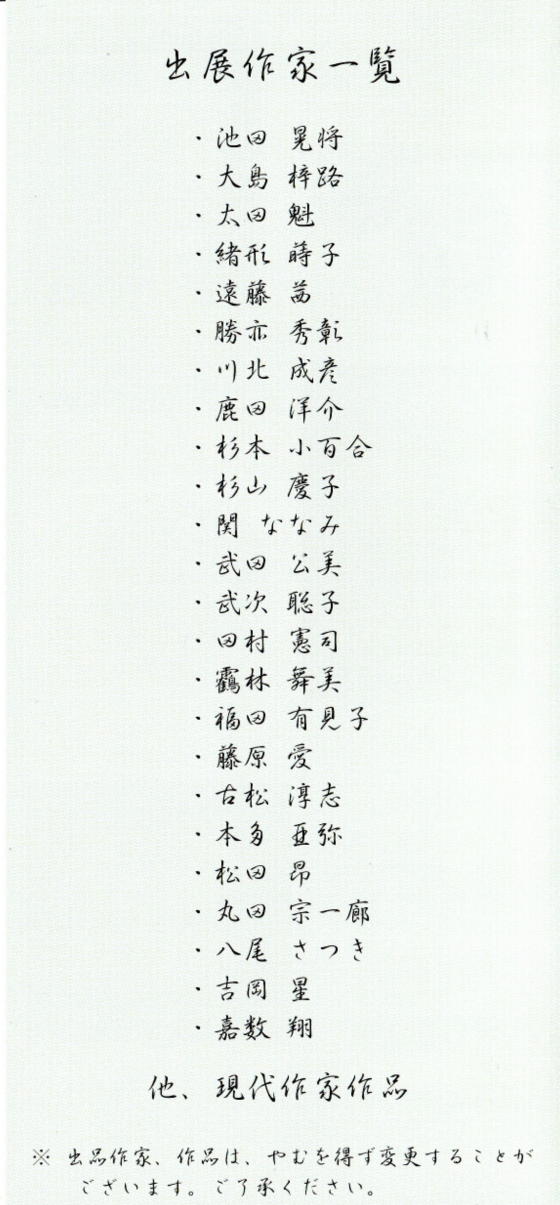 出展作家一覧
・池田 晃将
・大島 梓路
・太田 魁
・緒形 蒔子
・遠藤 茜
・勝亦 秀彰
・川北 成彦
・鹿田 洋介
・杉本 小百合
・杉山 慶子
・関 ななみ
・武田 公美
・武次 聡子
・田村 憲司
・靏林 舞美
・福田 有見子
・藤原 愛
・古松 淳志
・本多 亜弥
・松田 昴
・丸田 宗一廊
・八尾 さつき
・吉岡 星
・嘉数 翔
他、現代作家作品
※ 出品作家、作品は、やむを得ず変更することが
ございます。ご了承ください。